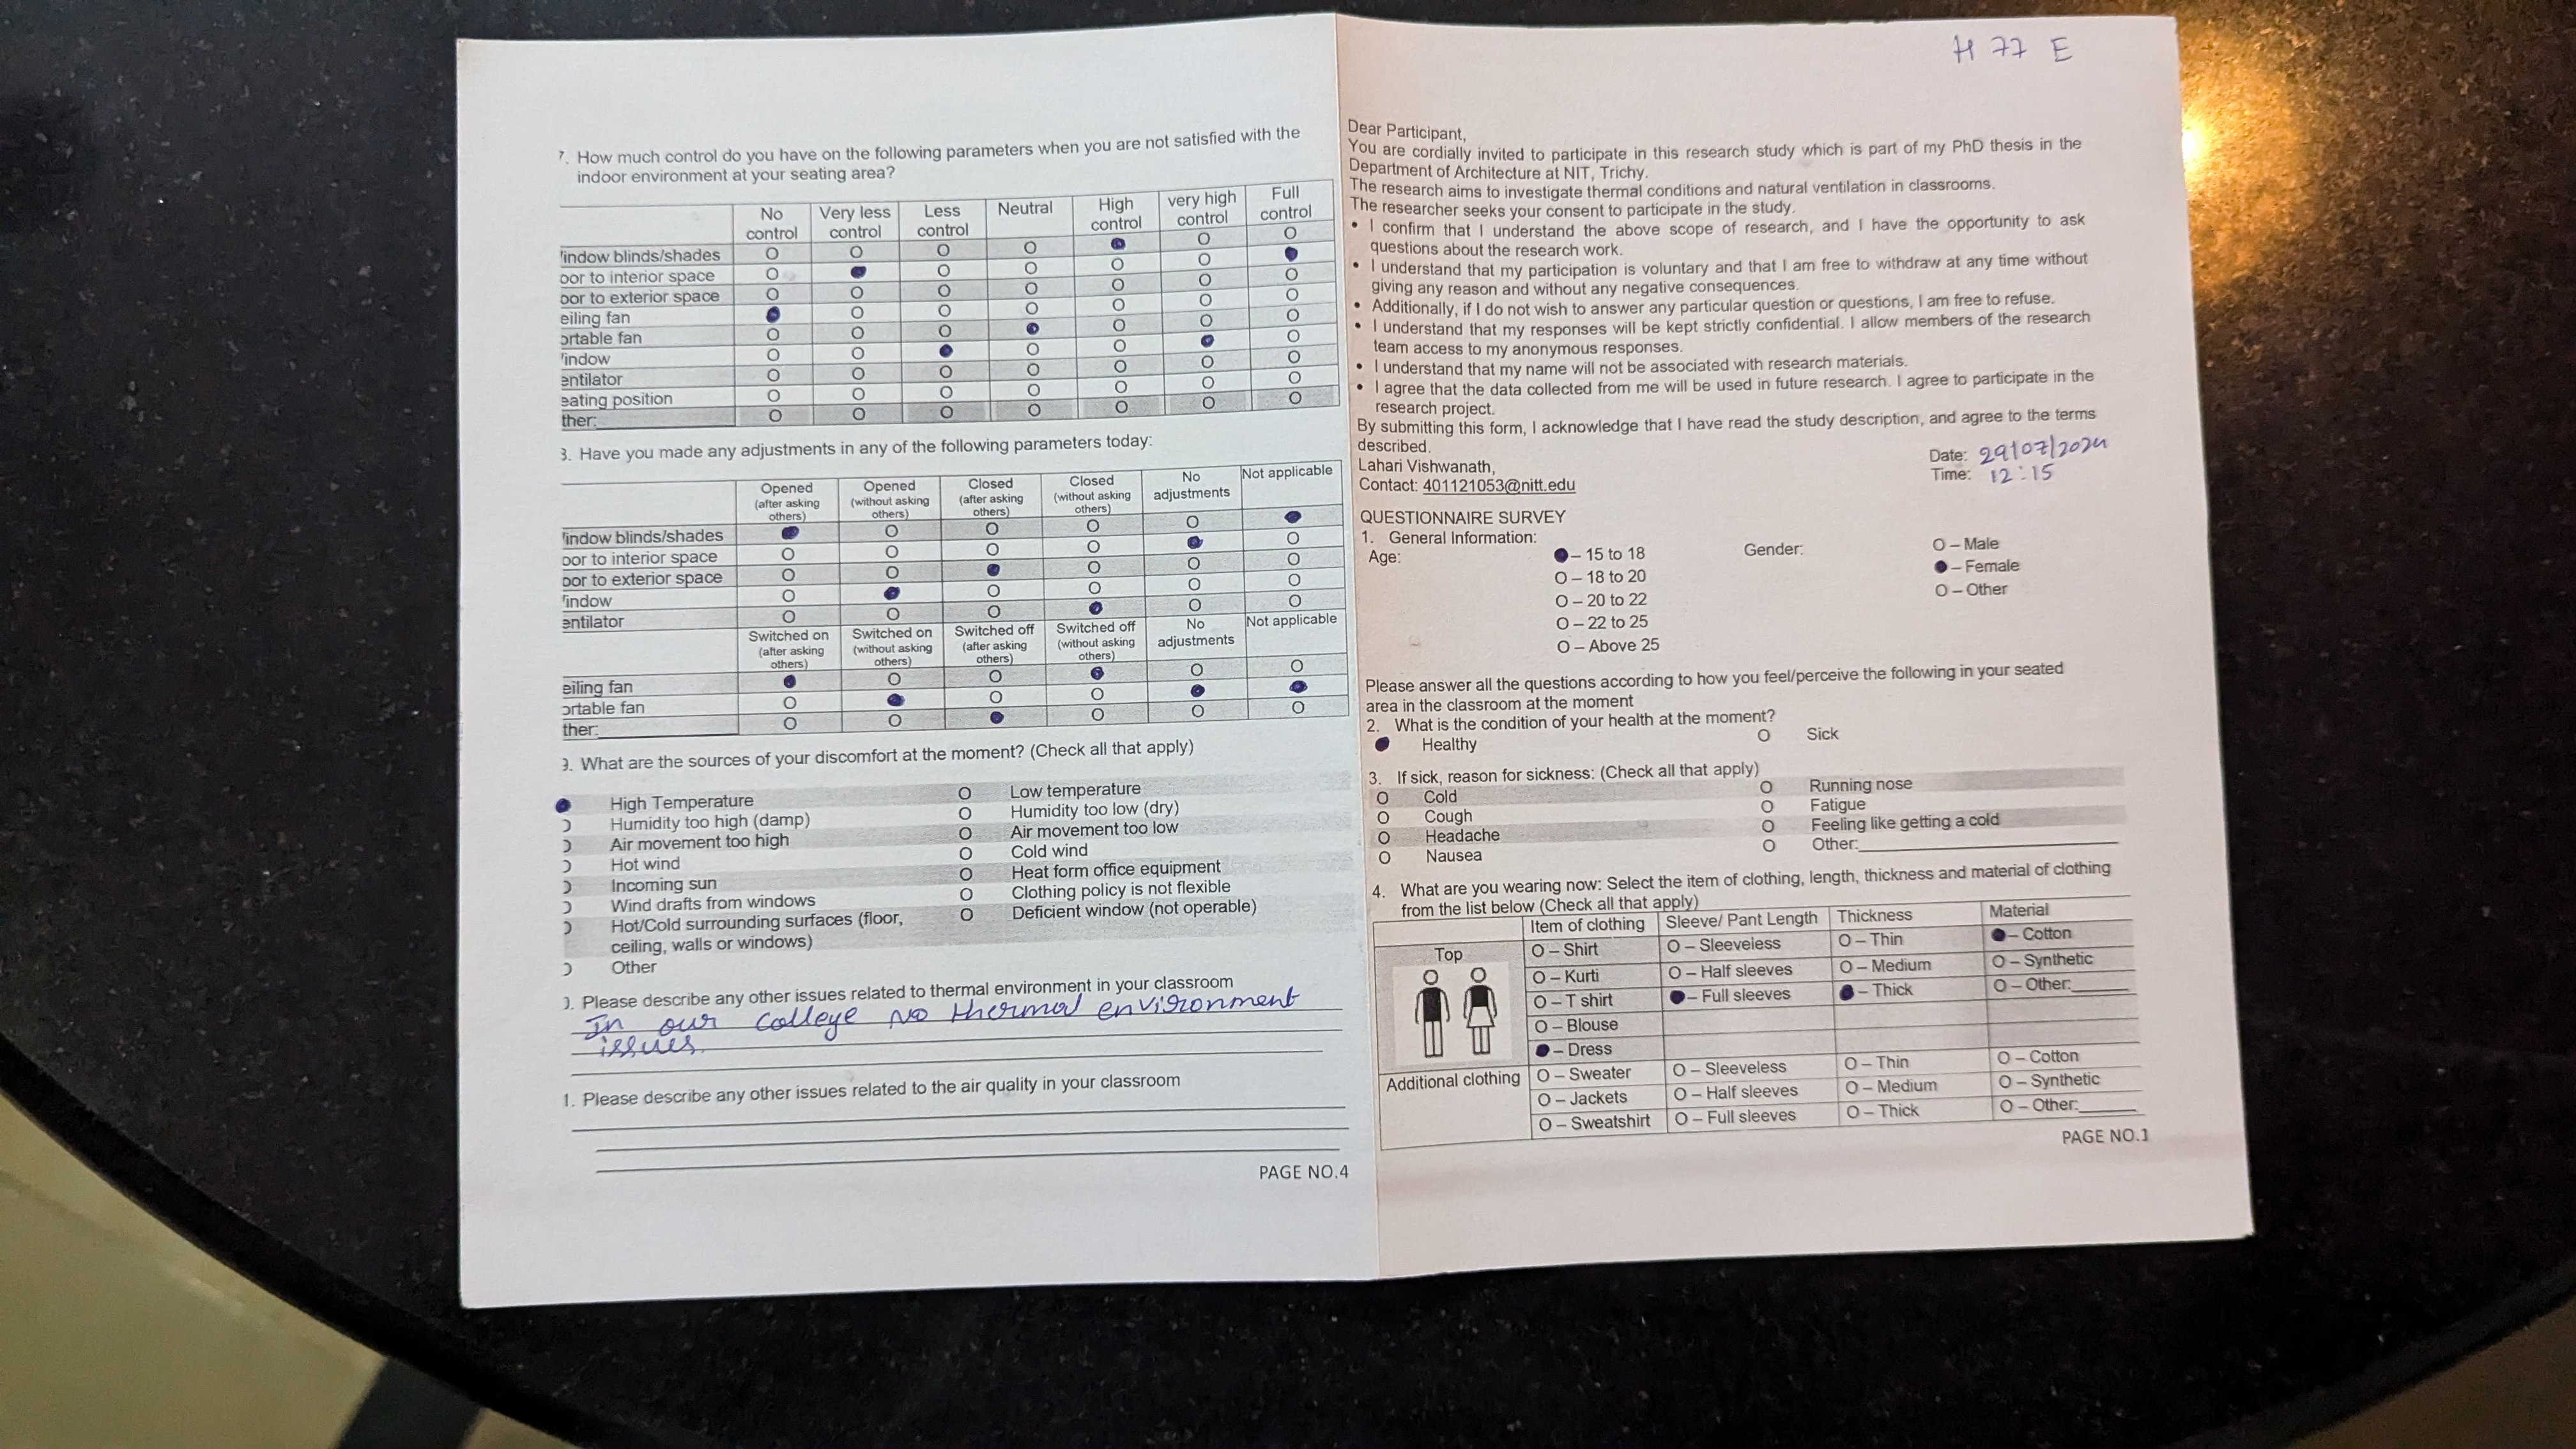 7. How much control do you have on the following parameters when you are not satisfied with the
indoor environment at your seating area?
No control Very less control Less control Neutral High control very high control Full control
indow blinds/shades O O O O ● O O
oor to interior space O ● O O O O ●
oor to exterior space O O O O O O O
eiling fan ● O O O O O O
ortable fan O O O ● O O O
indow O O ● O O ● O
entilator O O O O O O O
eating position O O O O O O O
ther: O O O O O O O
3. Have you made any adjustments in any of the following parameters today:
Opened (after asking others) Opened (without asking others) Closed (after asking others) Closed (without asking others) No adjustments Not applicable
indow blinds/shades ● O O O O ●
oor to interior space O O O O ● O
oor to exterior space O O ● O O O
indow O ● O O O O
entilator O O O ● O O
Switched on (after asking others) Switched on (without asking others) Switched off (after asking others) Switched off (without asking others) No adjustments Not applicable
eiling fan ● O O ● O O
ortable fan O ● O O ● ●
ther: O O ● O O O
9. What are the sources of your discomfort at the moment? (Check all that apply)
● High Temperature O Low temperature
Humidity too high (damp) O Humidity too low (dry)
Air movement too high O Air movement too low
Hot wind O Cold wind
Incoming sun O Heat form office equipment
Wind drafts from windows O Clothing policy is not flexible
Hot/Cold surrounding surfaces (floor, O Deficient window (not operable)
ceiling, walls or windows)
Other
). Please describe any other issues related to thermal environment in your classroom
In our colleye No thermal environment
issues.
1. Please describe any other issues related to the air quality in your classroom
PAGE NO.4
H 77 E
Dear Participant,
You are cordially invited to participate in this research study which is part of my PhD thesis in the
Department of Architecture at NIT, Trichy.
The research aims to investigate thermal conditions and natural ventilation in classrooms.
The researcher seeks your consent to participate in the study.
• I confirm that I understand the above scope of research, and I have the opportunity to ask
questions about the research work.
• I understand that my participation is voluntary and that I am free to withdraw at any time without
giving any reason and without any negative consequences.
• Additionally, if I do not wish to answer any particular question or questions, I am free to refuse.
• I understand that my responses will be kept strictly confidential. I allow members of the research
team access to my anonymous responses.
• I understand that my name will not be associated with research materials.
• I agree that the data collected from me will be used in future research. I agree to participate in the
research project.
By submitting this form, I acknowledge that I have read the study description, and agree to the terms
described.
Lahari Vishwanath,
Contact: 401121053@nitt.edu
Date: 29/07/2024
Time: 12:15
QUESTIONNAIRE SURVEY
1. General Information:
Age: ● – 15 to 18 Gender: O – Male
O – 18 to 20 ● – Female
O – 20 to 22 O – Other
O – 22 to 25
O – Above 25
Please answer all the questions according to how you feel/perceive the following in your seated
area in the classroom at the moment
2. What is the condition of your health at the moment?
● Healthy O Sick
3. If sick, reason for sickness: (Check all that apply)
O Cold O Running nose
O Cough O Fatigue
O Headache O Feeling like getting a cold
O Nausea O Other:
4. What are you wearing now: Select the item of clothing, length, thickness and material of clothing
from the list below (Check all that apply)
Item of clothing Sleeve/ Pant Length Thickness Material
Top O – Shirt O – Sleeveless O – Thin ● – Cotton
O – Kurti O – Half sleeves O – Medium O – Synthetic
O – T shirt ● – Full sleeves ● – Thick O – Other:
O – Blouse
● – Dress
Additional clothing O – Sweater O – Sleeveless O – Thin O – Cotton
O – Jackets O – Half sleeves O – Medium O – Synthetic
O – Sweatshirt O – Full sleeves O – Thick O – Other:
PAGE NO.1